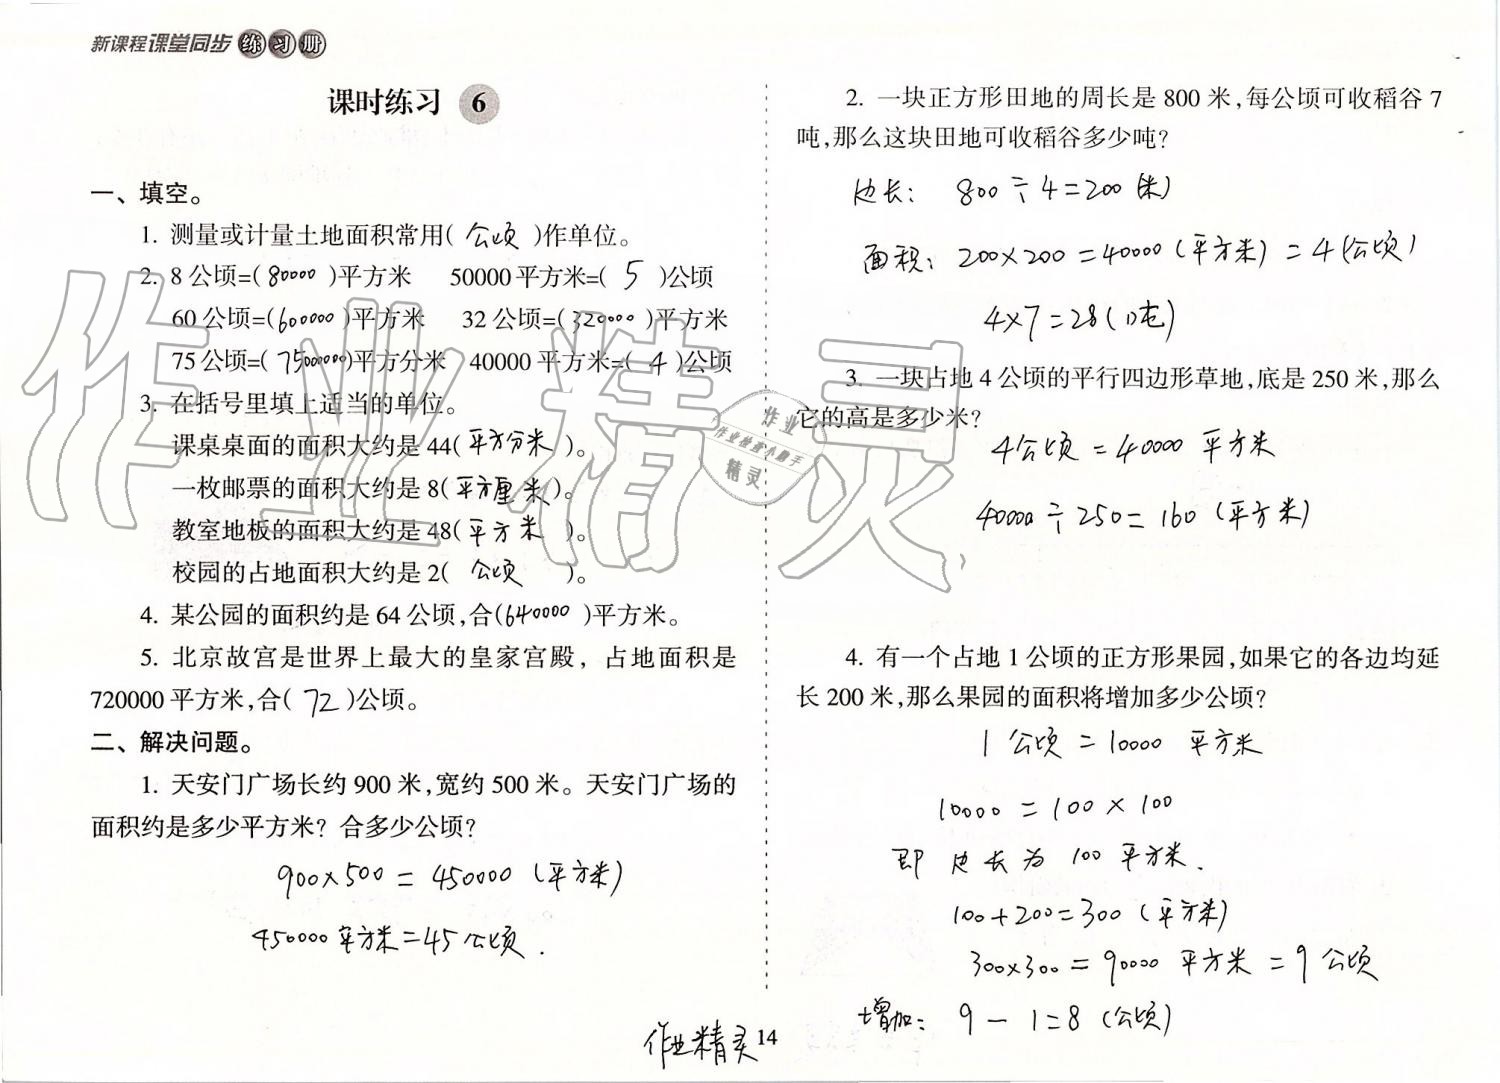 新课程课堂同步练习册
课时练习 6
一、填空。
1. 测量或计量土地面积常用( 公顷 )作单位。
2. 8公顷=( 80000 )平方米 50000平方米=( 5 )公顷
60公顷=( 600000 )平方米 32公顷=( 320000 )平方米
75公顷=( 75000000 )平方分米 40000平方米=( 4 )公顷
3. 在括号里填上适当的单位。
课桌桌面的面积大约是44( 平方分米 )。
一枚邮票的面积大约是8( 平方厘米 )。
教室地板的面积大约是48( 平方米 )。
校园的占地面积大约是2( 公顷 )。
4. 某公园的面积约是64公顷,合( 640000 )平方米。
5. 北京故宫是世界上最大的皇家宫殿, 占地面积是
720000平方米,合( 72 )公顷。
二、解决问题。
1. 天安门广场长约900米,宽约500米。天安门广场的
面积约是多少平方米? 合多少公顷?
900×500=450000(平方米)
450000平方米=45公顷.
2. 一块正方形田地的周长是800米,每公顷可收稻谷7
吨,那么这块田地可收稻谷多少吨?
边长: 800÷4=200(米)
面积: 200×200=40000(平方米)=4(公顷)
4×7=28(吨)
3. 一块占地4公顷的平行四边形草地,底是250米,那么
它的高是多少米?
4公顷=40000平方米
40000÷250=160(平方米)
4. 有一个占地1公顷的正方形果园,如果它的各边均延
长200米,那么果园的面积将增加多少公顷?
1公顷=10000平方米
10000=100×100
即 边长为100平方米.
100+200=300(平方米)
300×300=90000平方米=9公顷
增加: 9-1=8(公顷)
作业精灵
14
作业精灵
作业
作业检查小助手
精灵